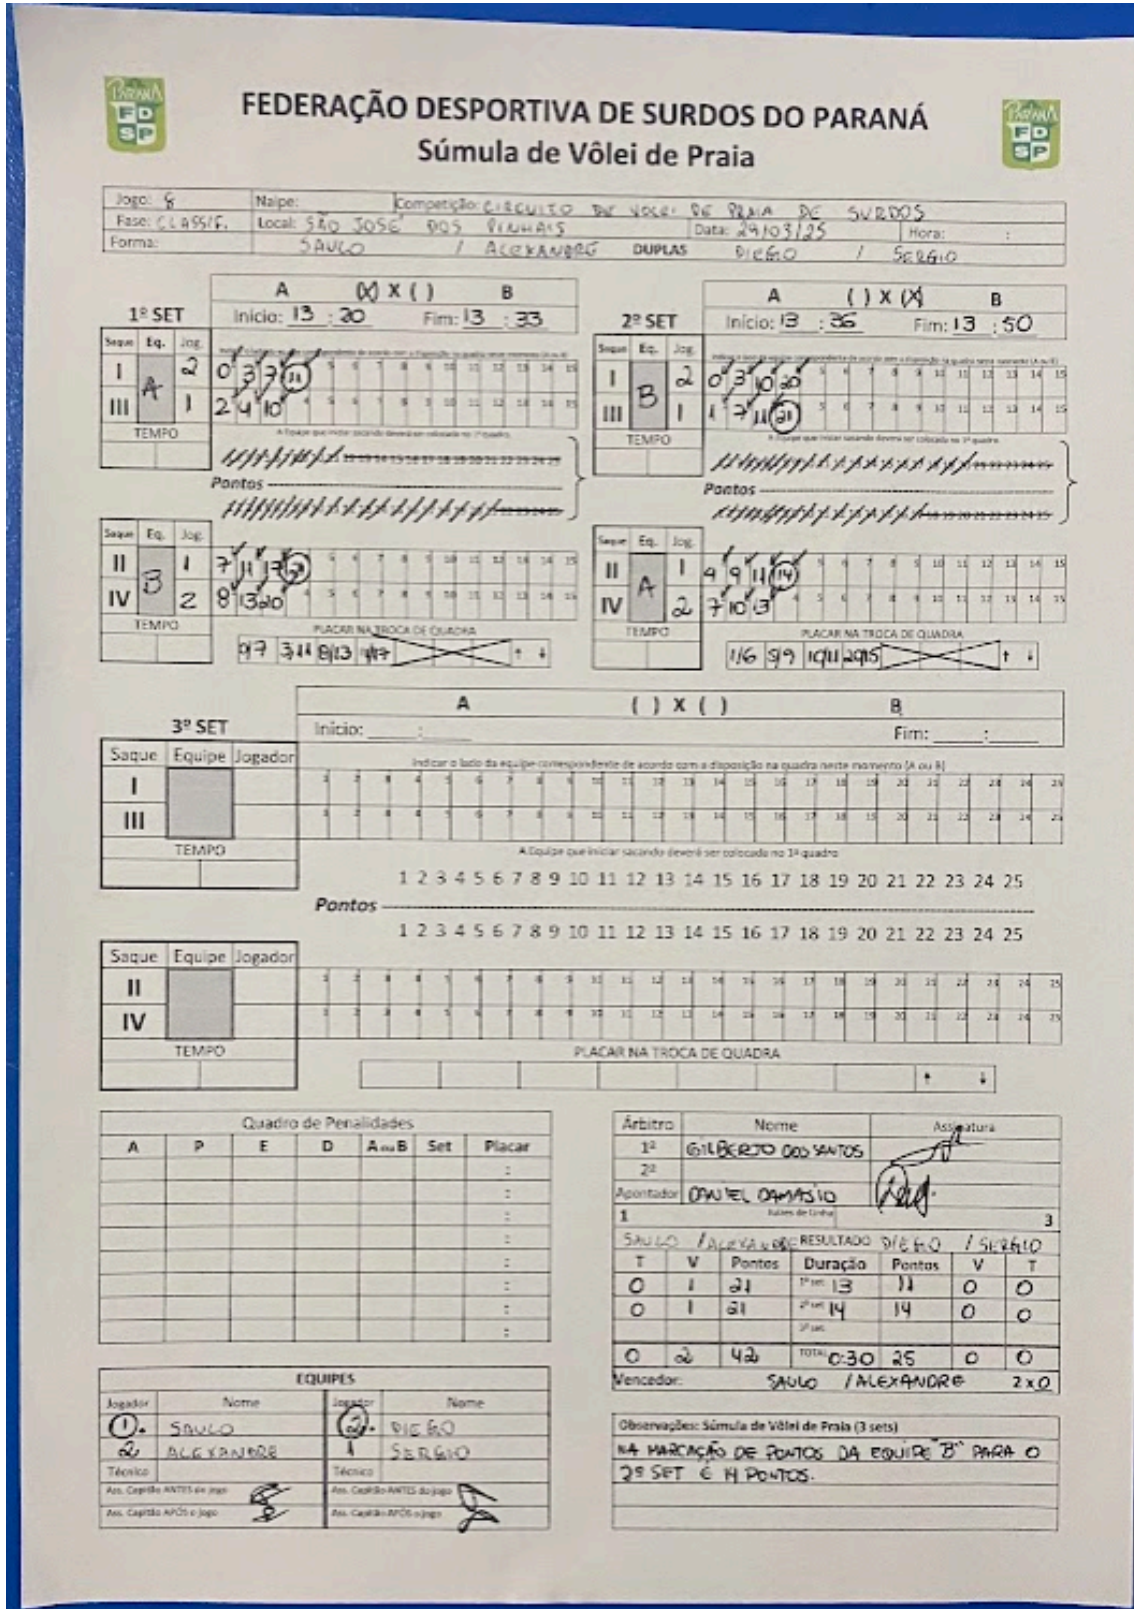 PARANÁ
FD
SP
FEDERAÇÃO DESPORTIVA DE SURDOS DO PARANÁ
Súmula de Vôlei de Praia
PARANÁ
FD
SP
Jogo: 8 Naipe: Competição: CIRCUITO DE VOLEI DE PRAIA DE SURDOS
Fase: CLASSIF. Local: SÃO JOSÉ DOS PINHAIS Data: 29/03/25 Hora: :
Forma: SAULO / ALEXANDRE DUPLAS DIEGO / SERGIO
A (X) X ( ) B
1º SET Início: 13 : 20 Fim: 13 : 33
Saque Eq. Jog.
I A 2 0 3 7 11
III 1 2 4 10
TEMPO
A Equipe que iniciar sacando deverá ser colocada no 1º quadro
Pontos
Saque Eq. Jog.
II B 1 7 11 17 21
IV 2 8 13 20
TEMPO
PLACAR NA TROCA DE QUADRA
0/7 3/11 8/13 11/17
A ( ) X (X) B
2º SET Início: 13 : 36 Fim: 13 : 50
Saque Eq. Jog.
I B 2 0 3 10 20
III 1 1 7 11 21
TEMPO
A Equipe que iniciar sacando deverá ser colocada no 1º quadro
Pontos
Saque Eq. Jog.
II A 1 4 9 11 14
IV 2 7 10 13
TEMPO
PLACAR NA TROCA DE QUADRA
1/6 5/9 10/11 20/15
A ( ) X ( ) B
3º SET Início: : Fim: :
Saque Equipe Jogador
Indicar o lado da equipe correspondente de acordo com a disposição na quadra neste momento (A ou B)
I 1 2 3 4 5 6 7 8 9 10 11 12 13 14 15 16 17 18 19 20 21 22 23 24 25
III 1 2 3 4 5 6 7 8 9 10 11 12 13 14 15 16 17 18 19 20 21 22 23 24 25
TEMPO
A Equipe que iniciar sacando deverá ser colocada no 1º quadro
1 2 3 4 5 6 7 8 9 10 11 12 13 14 15 16 17 18 19 20 21 22 23 24 25
Pontos
1 2 3 4 5 6 7 8 9 10 11 12 13 14 15 16 17 18 19 20 21 22 23 24 25
Saque Equipe Jogador
II 1 2 3 4 5 6 7 8 9 10 11 12 13 14 15 16 17 18 19 20 21 22 23 24 25
IV 1 2 3 4 5 6 7 8 9 10 11 12 13 14 15 16 17 18 19 20 21 22 23 24 25
TEMPO
PLACAR NA TROCA DE QUADRA
Quadro de Penalidades
A P E D A ou B Set Placar
Árbitro Nome Assinatura
1º GILBERTO DOS SANTOS
2º
Apontador DANIEL DAMASIO
1 Juízes de Linha 3
SAULO / ALEXANDRE RESULTADO DIEGO / SERGIO
T V Pontos Duração Pontos V T
0 1 21 1º set 13 11 0 0
0 1 21 2º set 14 14 0 0
3º set
0 2 42 TOTAL 0:30 25 0 0
Vencedor: SAULO / ALEXANDRE 2 x 0
EQUIPES
Jogador Nome Jogador Nome
1. SAULO 2. DIEGO
2 ALEXANDRE 1 SERGIO
Técnico Técnico
Ass. Capitão ANTES do jogo Ass. Capitão ANTES do jogo
Ass. Capitão APÓS o jogo Ass. Capitão APÓS o jogo
Observações: Súmula de Vôlei de Praia (3 sets)
NA MARCAÇÃO DE PONTOS DA EQUIPE "B" PARA O
2º SET É 14 PONTOS.